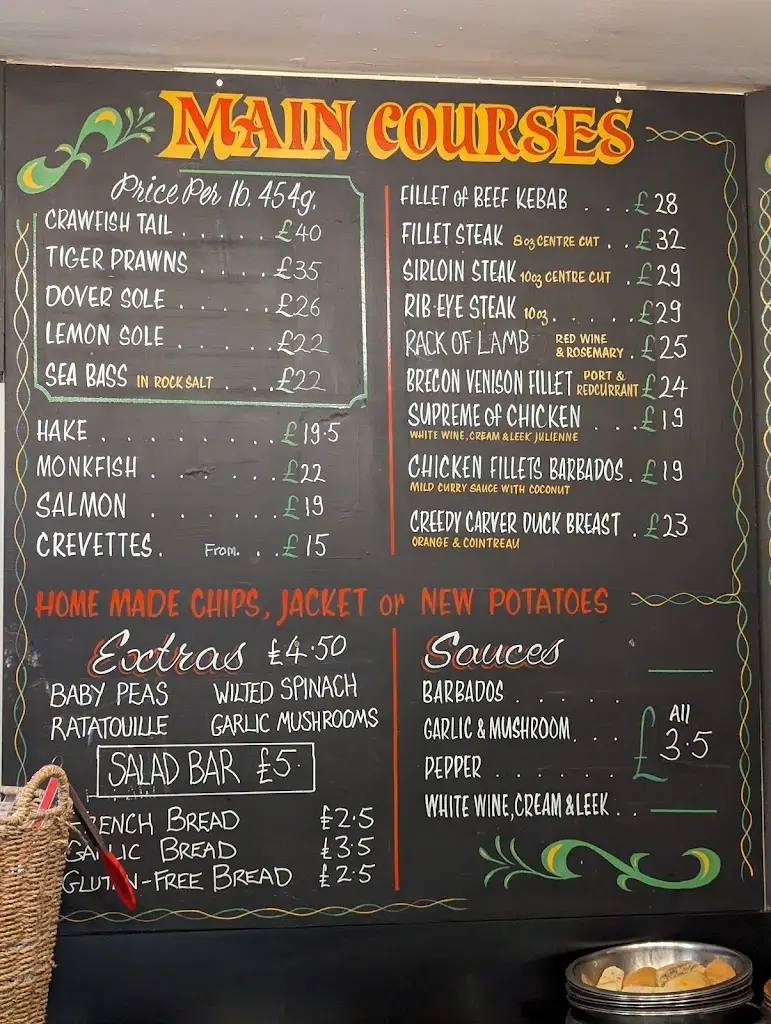 MAIN COURSES
Price Per lb. 454g.
CRAWFISH TAIL . . . . . . £40
TIGER PRAWNS . . . . . £35
DOVER SOLE . . . . . . £26
LEMON SOLE . . . . . . £22
SEA BASS IN ROCK SALT . . . £22
HAKE . . . . . . . . . . £19.5
MONKFISH . . . . . . £22
SALMON . . . . . . £19
CREVETTES. From. . . £15
FILLET of BEEF KEBAB . . . £28
FILLET STEAK 8oz CENTRE CUT . . £32
SIRLOIN STEAK 10oz CENTRE CUT . £29
RIB-EYE STEAK 10oz . . . . . £29
RACK OF LAMB RED WINE & ROSEMARY . £25
BRECON VENISON FILLET PORT & REDCURRANT £24
SUPREME of CHICKEN . . . £19
WHITE WINE, CREAM & LEEK JULIENNE
CHICKEN FILLETS BARBADOS . £19
MILD CURRY SAUCE WITH COCONUT
CREEDY CARVER DUCK BREAST . £23
ORANGE & COINTREAU
HOME MADE CHIPS, JACKET or NEW POTATOES
Extras £4.50
BABY PEAS WILTED SPINACH
RATATOUILLE GARLIC MUSHROOMS
SALAD BAR £5.
RENCH BREAD £2.5
GARLIC BREAD £3.5
GLUTEN-FREE BREAD £2.5
Sauces
BARBADOS . . . . . .
GARLIC & MUSHROOM . . .
PEPPER . . . . . . . .
WHITE WINE, CREAM & LEEK . .
All £3.5